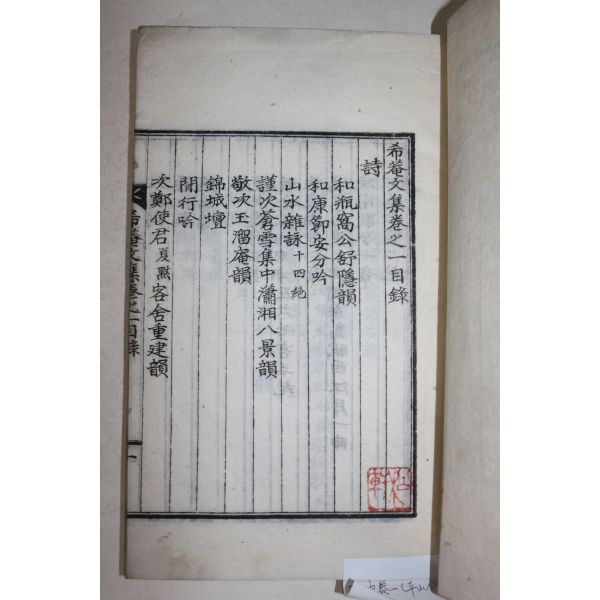 希菴文集卷之一目錄
詩
和瓶窩公舒隱韻
和康節安分吟
山水雜詠十四絶
謹次蒼雪集中瀟湘八景韻
敬次玉溜庵韻
錦城壇
閒行吟
次鄭使君夏㸃客舍重建韻
希菴文集卷之一目錄
一